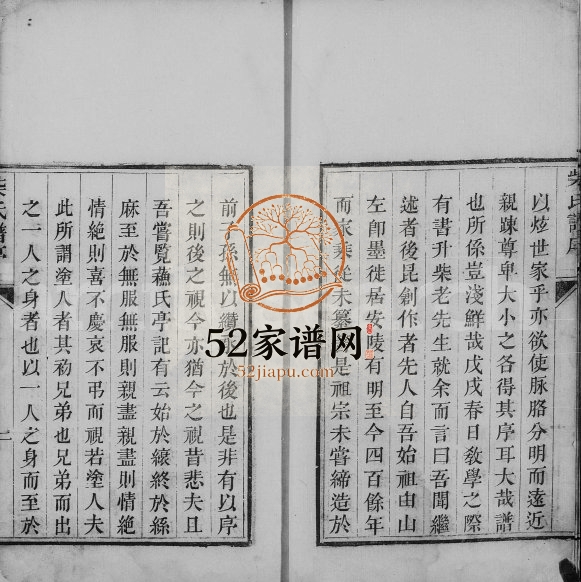 柴氏譜序
以炫世家乎亦欲使脉胳分明而遠近
親踈尊卑大小之各得其序耳大哉譜
也所係豈淺鮮哉戊戌春日敎學之際
有書升柴老先生就余而言曰吾聞繼
述者後昆創作者先人自吾始祖由山
左卽墨徙居安陵有明至今四百餘年
而家乘從未纂 是祖宗未嘗締造於
前 孫無以纘 於後也是非有以序
之則後之視今亦猶今之視昔悲夫且
吾嘗覽蘓氏亭記有云始於縗終於緦
麻至於無服無服則親盡親盡則情絶
情絶則喜不慶哀不弔而視若塗人夫
此所謂塗人者其初兄弟也兄弟而出
之一人之身者也以一人之身而至於
柴氏譜序
二
52家谱网
52jiapu.com